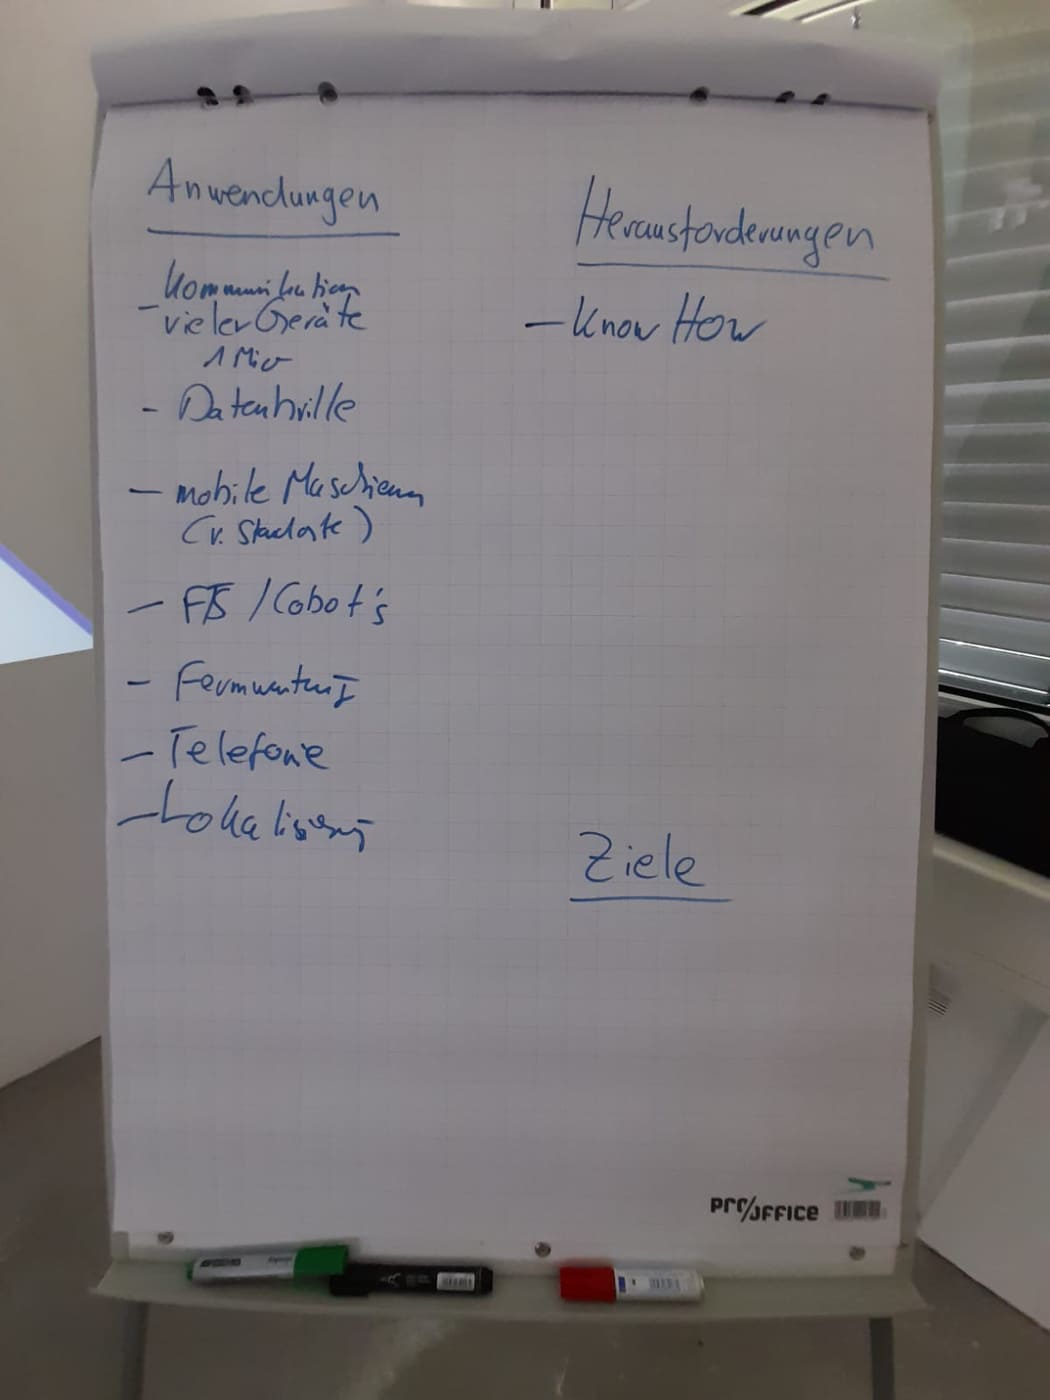 Anwendungen
- Kommunikation
vieler Geräte
1 Mio
- Datenbrille
- mobile Maschienen
(v. Standorte)
- FTS / Cobot's
- Fernwartung
- Telefonie
- Lokalisierung
Herausforderungen
- Know How
Ziele
PRO/OFFICE